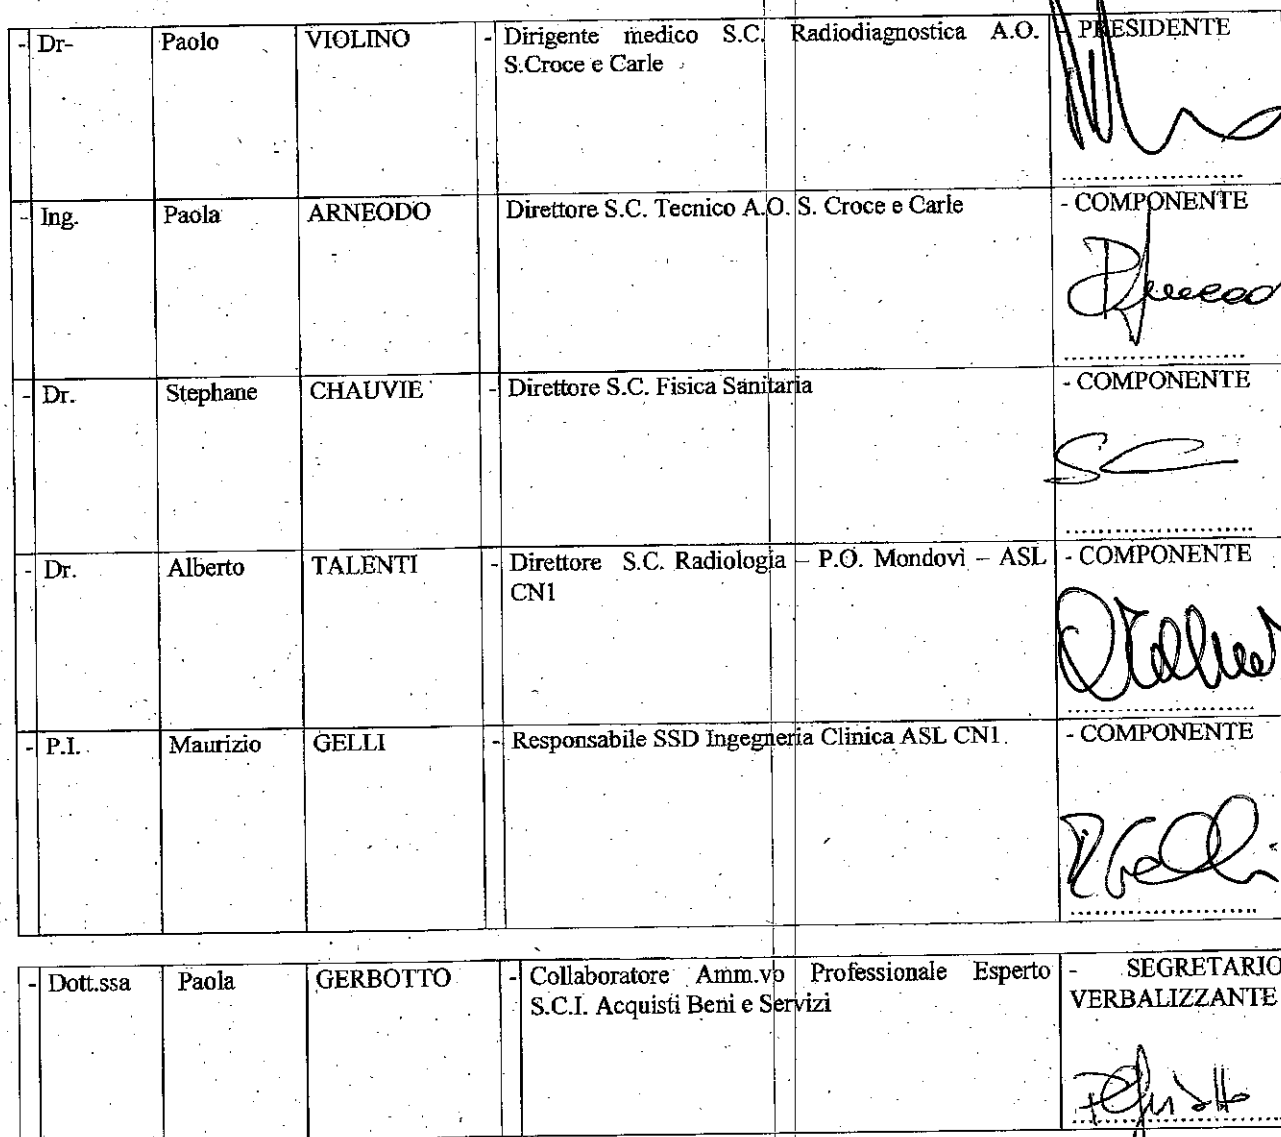 - Dr- Paolo VIOLINO - Dirigente medico S.C. Radiodiagnostica A.O. - PRESIDENTE
S.Croce e Carle
- Ing. Paola ARNEODO Direttore S.C. Tecnico A.O. S. Croce e Carle - COMPONENTE
- Dr. Stephane CHAUVIE - Direttore S.C. Fisica Sanitaria - COMPONENTE
- Dr. Alberto TALENTI - Direttore S.C. Radiologia – P.O. Mondovì – ASL - COMPONENTE
CN1
- P.I. Maurizio GELLI - Responsabile SSD Ingegneria Clinica ASL CN1. - COMPONENTE
- Dott.ssa Paola GERBOTTO - Collaboratore Amm.vo Professionale Esperto - SEGRETARIO
S.C.I. Acquisti Beni e Servizi VERBALIZZANTE